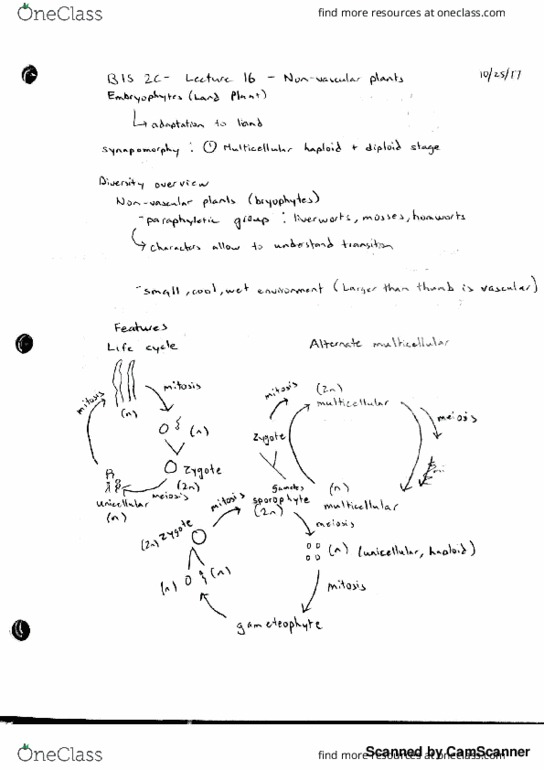 OneClass
find more resources at oneclass.com
BIS 2C - Lecture 16 - Non-vascular plants
10/25/17
Embryophytes (Land Plant)
↳ adaptation to land
synapomorphy : ① Multicellular haploid + diploid stage
Diversity overview
Non-vascular plants (bryophytes)
- paraphyletic group : liverworts, mosses, hornworts
↳ characters allow to understand transition
- small, cool, wet environment (Larger than thumb is vascular)
Features
Life cycle
Alternate multicellular
mitosis
mitosis
(n)
(n)
Zygote
(2n)
meiosis
unicellular
(n)
mitosis
(2n)
multicellular
meiosis
Zygote
gametes
(n)
multicellular
mitosis
sporophyte
(2n)
meiosis
(2n) Zygote
(n) (unicellular, haploid)
(n)
(n)
mitosis
gameteophyte
OneClass
find more resources at oneclass.com
Scanned by CamScanner